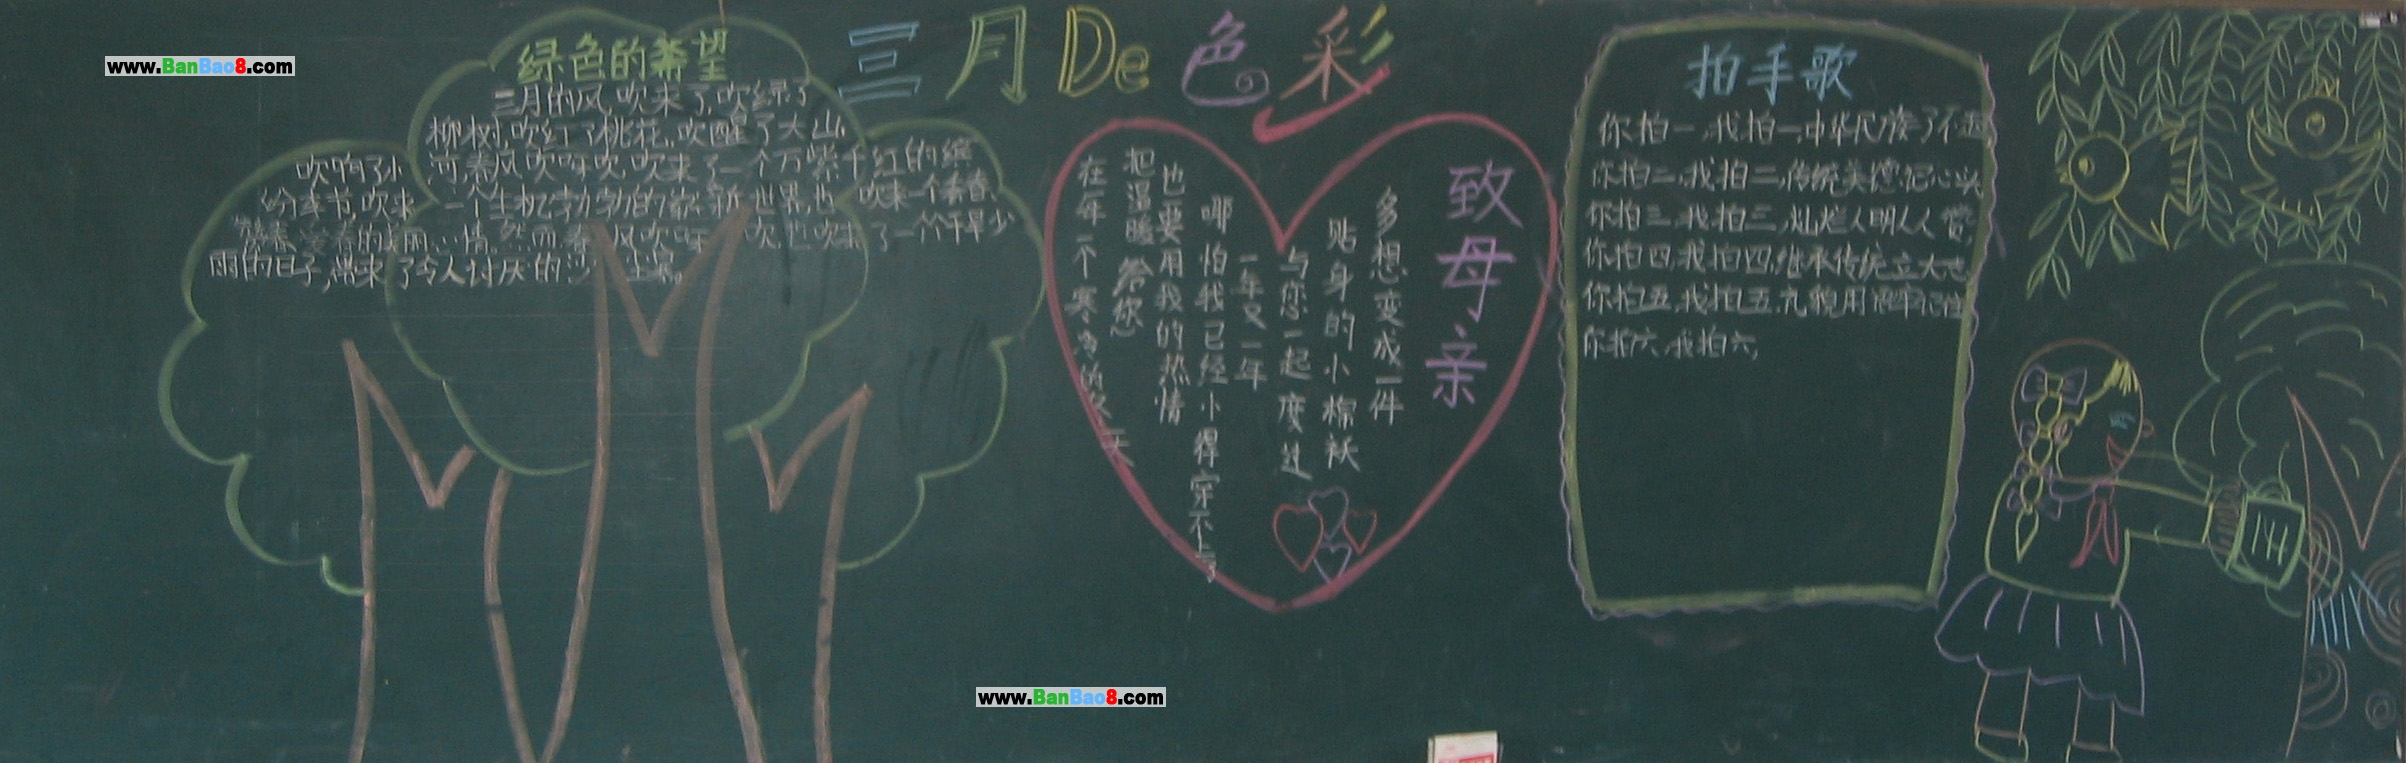 www.BanBao8.com
三月De色彩
绿色的希望
三月的风,吹来了,吹绿了
柳树,吹红了桃花,吹醒了大山
吹响了小河,春风吹呀吹,吹来了一个万紫千红的缤
纷季节,吹来一个生机勃勃的崭新世界,也吹来一个
的美丽心情,然而春风吹呀吹,也吹来了一个干旱少
雨的日子,带来了令人讨厌的沙尘暴。
致母亲
多想变成一件
贴身的小棉袄
与您一起度过
一年又一年
哪怕我已经小得穿不上了
也要用我的热情
把温暖给你
在每一个寒冷的冬天
拍手歌
你拍一,我拍一,中华民族了不起
你拍二,我拍二,传统美德记心
你拍三,我拍三,灿烂人明人人赞,
你拍四,我拍四,继承传统立大志
你拍五,我拍五,礼貌用语牢记住
你拍六,我拍六,
www.BanBao8.com